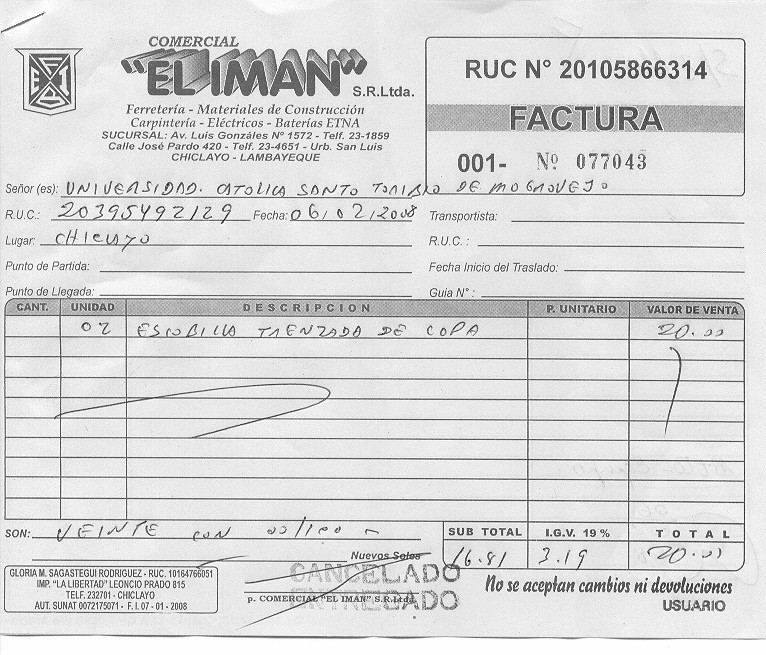 COMERCIAL
"EL IMAN" S.R.Ltda.
Ferretería - Materiales de Construcción
Carpintería - Eléctricos - Baterías ETNA
SUCURSAL: Av. Luis Gonzáles Nº 1572 - Telf. 23-1859
Calle José Pardo 420 - Telf. 23-4651 - Urb. San Luis
CHICLAYO - LAMBAYEQUE
RUC N° 20105866314
FACTURA
001- Nº 077043
Señor (es): UNIVERSIDAD. CATOLICA SANTO TORIBIO DE MOGROVEJO
R.U.C.: 20395492129 Fecha: 06/02/2008 Transportista:
Lugar: CHICLAYO R.U.C. :
Punto de Partida: Fecha Inicio del Traslado:
Punto de Llegada: Guia N° :
CANT. UNIDAD DESCRIPCION P. UNITARIO VALOR DE VENTA
02 ESCOBILLA TRENZADA DE COPA 20.00
SON: VEINTE CON 00/100
Nuevos Soles
SUB TOTAL I.G.V. 19% TOTAL
16.81 3.19 20.00
GLORIA M. SAGASTEGUI RODRIGUEZ - RUC. 10164766051
IMP. "LA LIBERTAD" LEONCIO PRADO 815
TELF. 232701 - CHICLAYO
AUT. SUNAT 0072175071 - F.I. 07 - 01 - 2008
CANCELADO
p. COMERCIAL "EL IMAN" S.R.Ltda.
ENTREGADO
No se aceptan cambios ni devoluciones
USUARIO